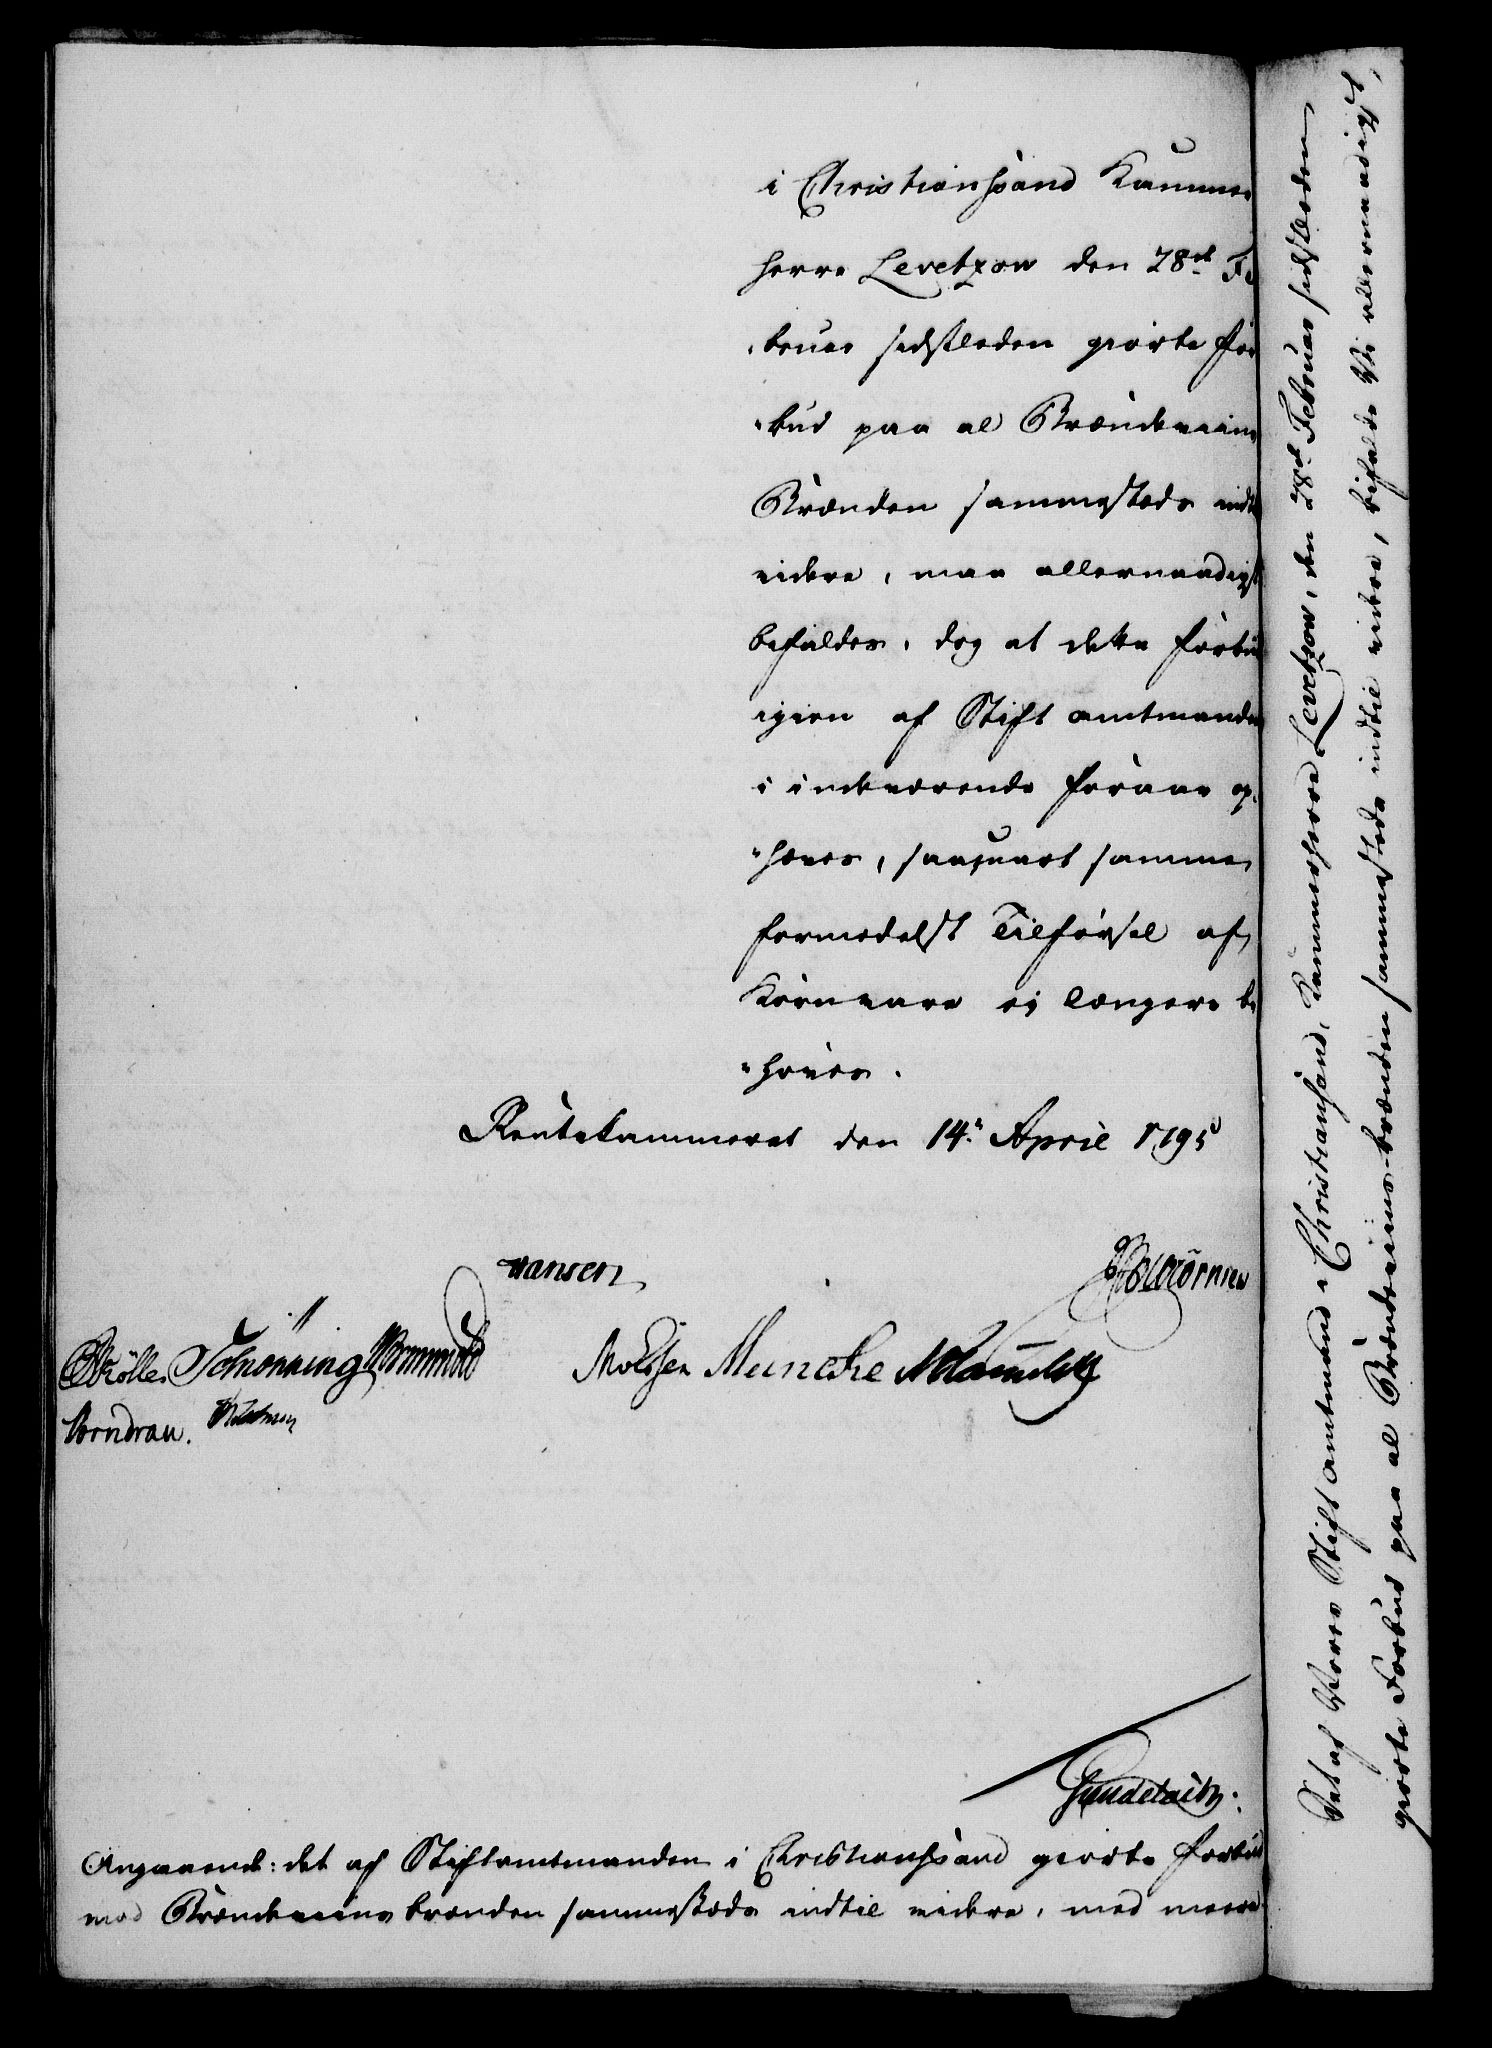 i Christiansand Kammer
herre Levetzow den 28de Fe
bruar sidstleden giorte For
bud paa al Brændeviins
Brænden sammesteds indtil
videre, maa allernaadigst
bifaldes, dog at dette Forbud
igien af Stiftamtmanden
i indeværende Foraar op-
hæves, saasnart samme
formedelst Tilførsel af
Kornvare ei længere be
høves.
Rentekammeret den 14de April 1795
Hansen
Schønning Molssen Muncke
Vorndran.
Angaaende: det af Stiftamtmanden i Christiansand giorte Forbud
mod Brændeviins brænden sammesteds indtil videre, med meere
Det af Vores Stiftamtmand i Christiansand, Kammerherre Levetzow, den 28de Februar sidstleden
giorte Forbud paa al Brændeviins-brænden sammesteds indtil videre, bifalde Vi allernaadigst,